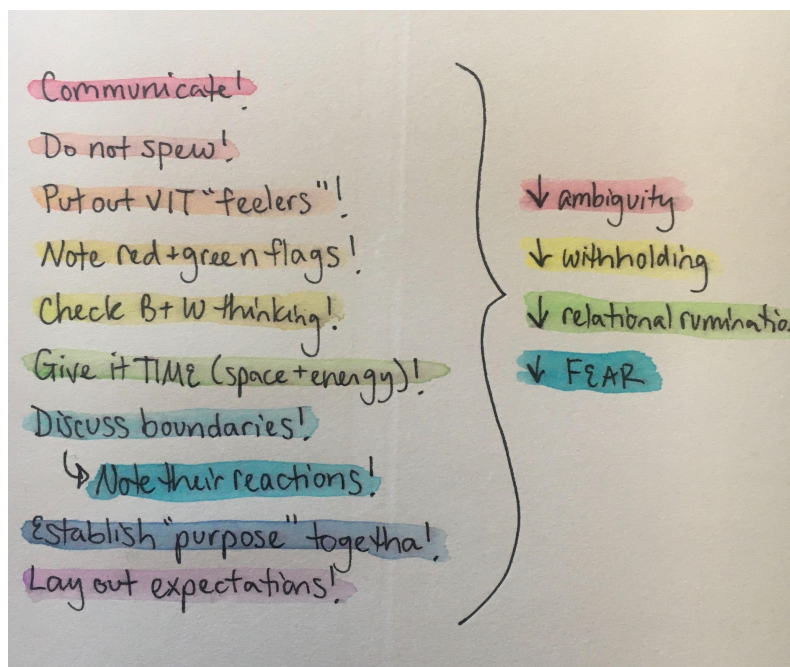 Communicate!
Do not spew!
Put out VIT "feelers"!
Note red+green flags!
Check B+W thinking!
Give it TIME (space+energy)!
Discuss boundaries!
↳ Note their reactions!
Establish "purpose" togetha!
Lay out expectations!
↓ ambiguity
↓ withholding
↓ relational ruminatio
↓ FEAR